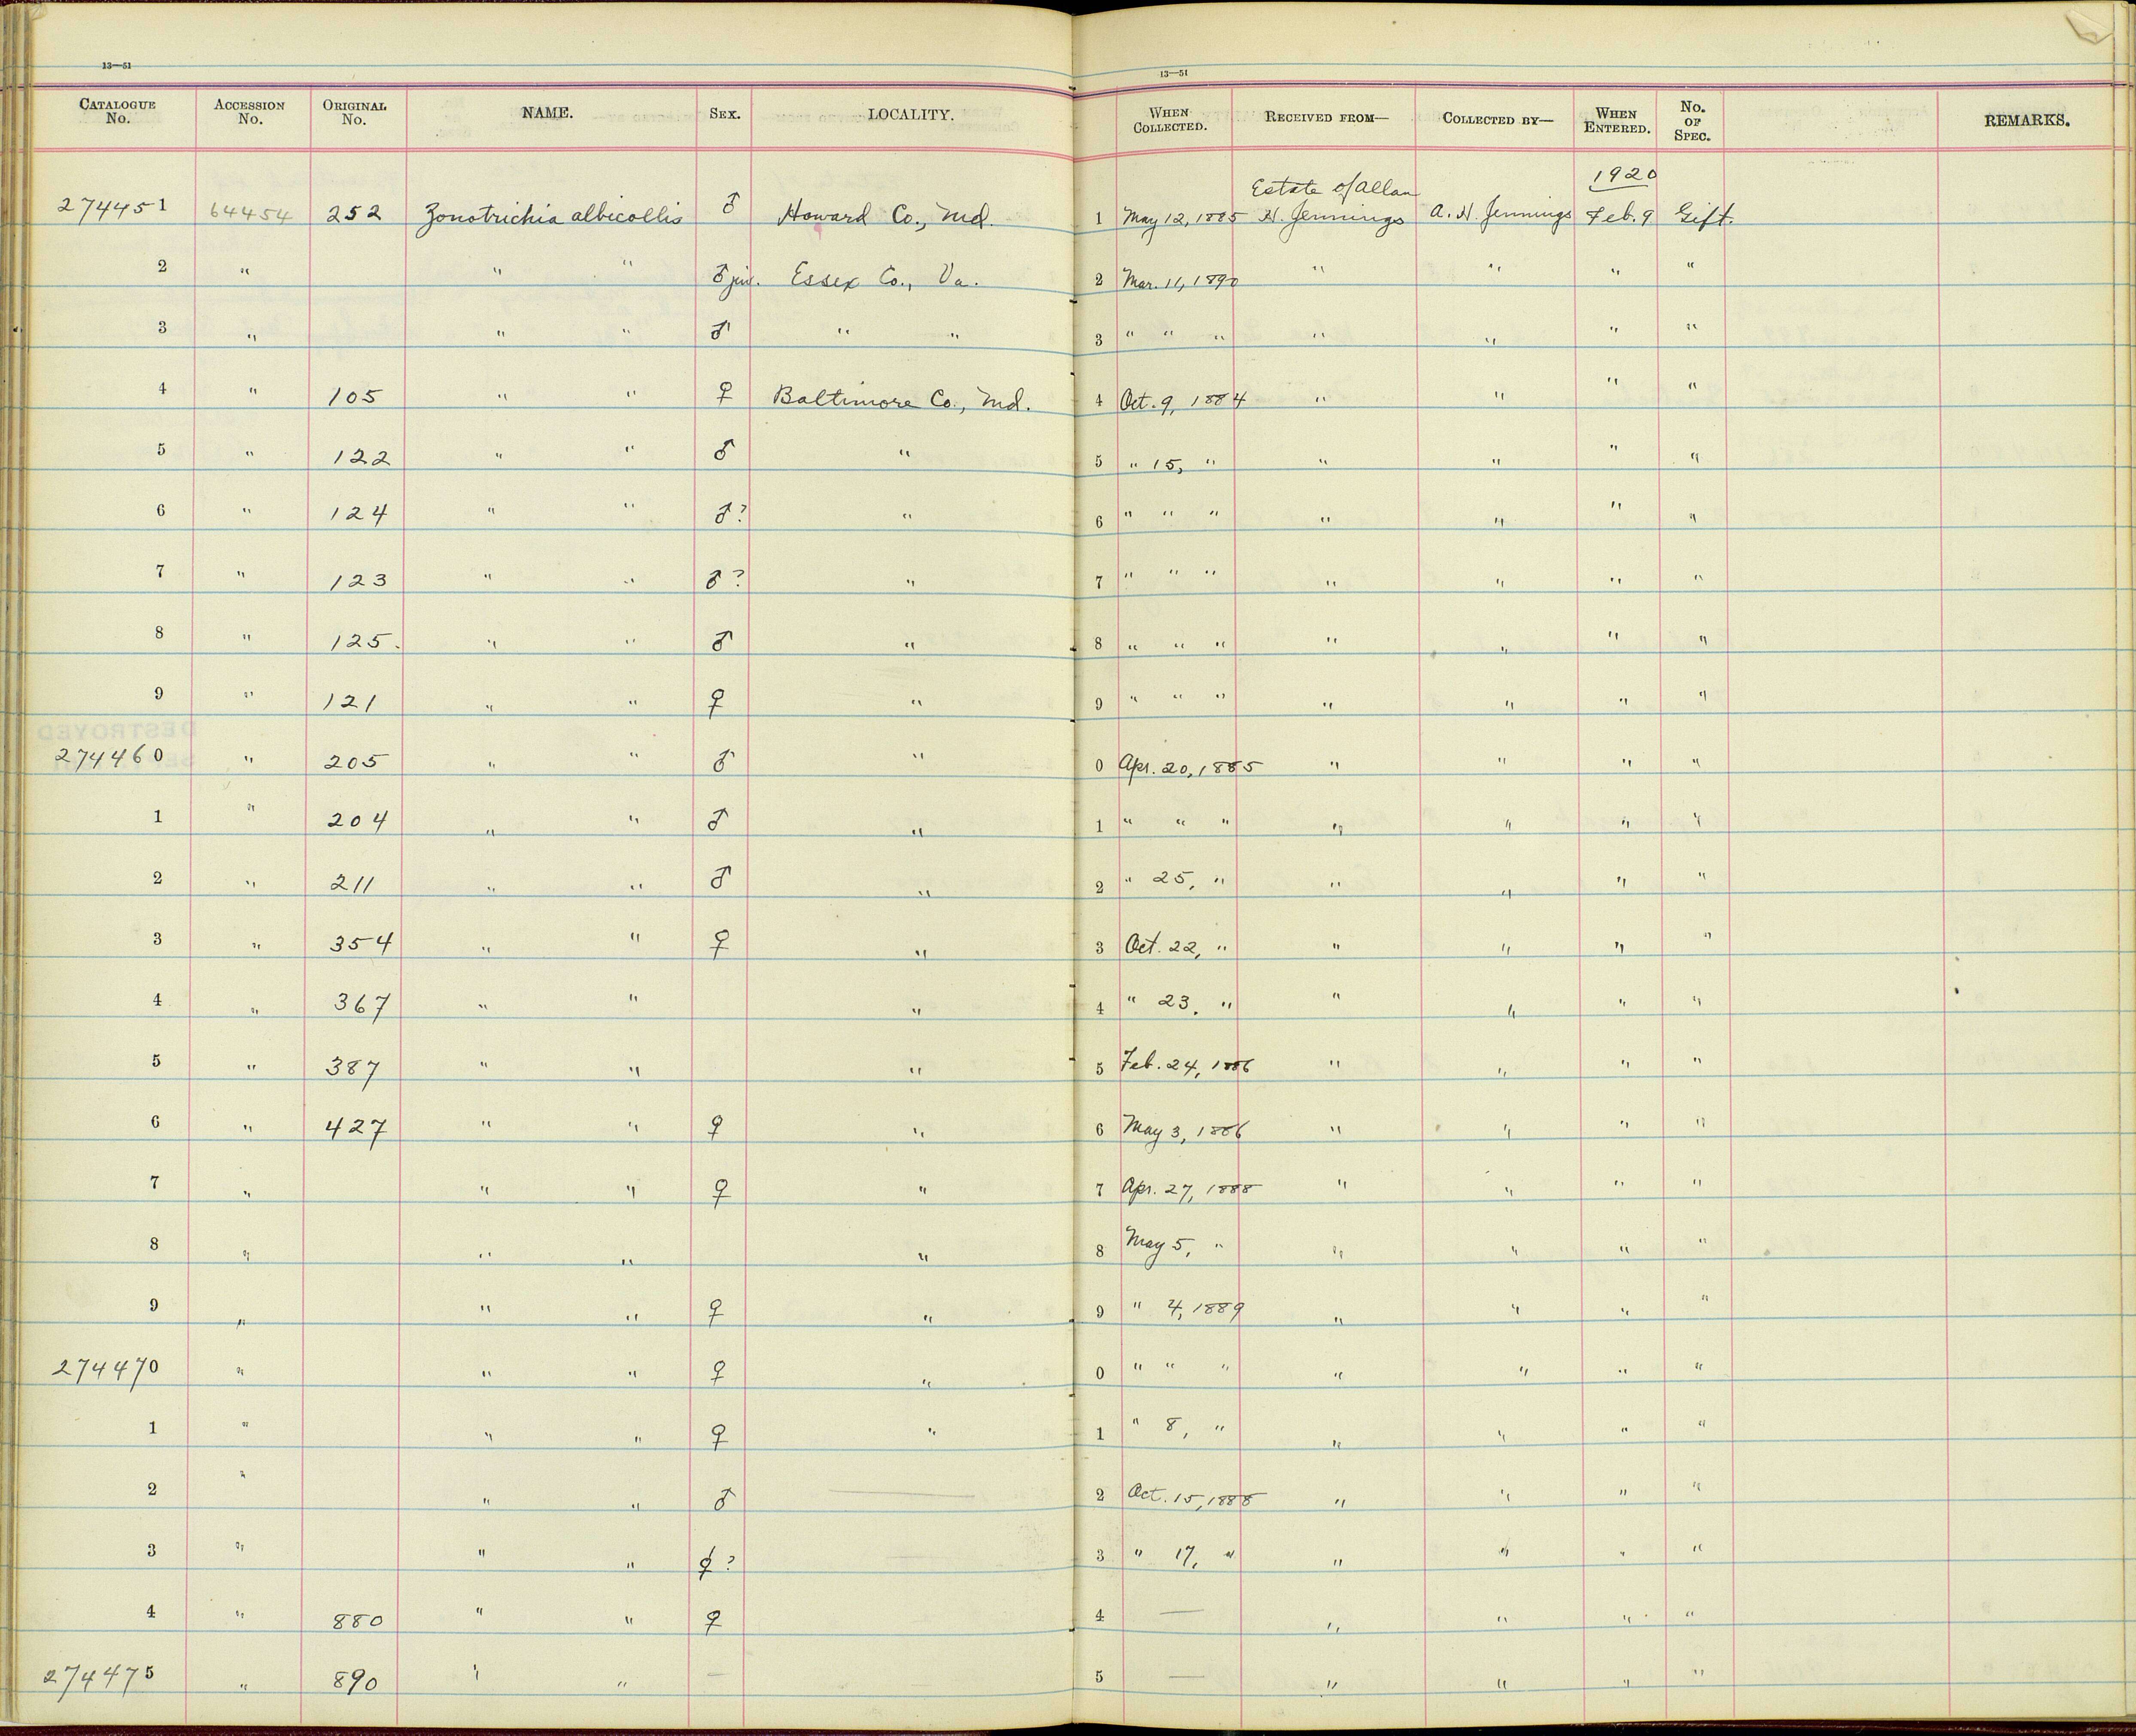 13—51
13—51
CATALOGUE No. ACCESSION No. ORIGINAL No. NAME. SEX. LOCALITY. WHEN COLLECTED. RECEIVED FROM— COLLECTED BY— WHEN ENTERED. No. OF SPEC. REMARKS.
1920
274451 64454 252 Zonotrichia albicollis ♂ Howard Co., Md. 1 May 12, 1885 Estate of Allan H. Jennings A. H. Jennings Feb. 9 Gift.
2 " " " ♂ juv. Essex Co., Va. 2 Mar. 11, 1890 " " " "
3 " " " ♂ " " 3 " " " " " " "
4 " 105 " " ♀ Baltimore Co., Md. 4 Oct. 9, 1884 " " " "
5 " 122 " " ♂ " 5 " 15, " " " " "
6 " 124 " " ♂? " 6 " " " " " " "
7 " 123 " " ♂? " 7 " " " " " " "
8 " 125. " " ♂ " 8 " " " " " " "
9 " 121 " " ♀ " 9 " " " " " " "
274460 " 205 " " ♂ " 0 Apr. 20, 1885 " " " "
1 " 204 " " ♂ " 1 " " " " " " "
2 " 211 " " ♂ " 2 " 25, " " " " "
3 " 354 " " ♀ " 3 Oct. 22, " " " " "
4 " 367 " " " 4 " 23, " " " " "
5 " 387 " " " 5 Feb. 24, 1886 " " " "
6 " 427 " " ♀ " 6 May 3, 1886 " " " "
7 " " " ♀ " 7 Apr. 27, 1888 " " " "
8 " " " " 8 May 5, " " " " "
9 " " " ♀ " 9 " 4, 1889 " " " "
274470 " " " ♀ " 0 " " " " " " "
1 " " " ♀ " 1 " 8, " " " " "
2 " " " ♂ — 2 Oct. 15, 1888 " " " "
3 " " " ? — 3 " 17, " " " " "
4 " 880 " " ♀ 4 — " " " "
274475 " 890 " " — 5 — " " " "